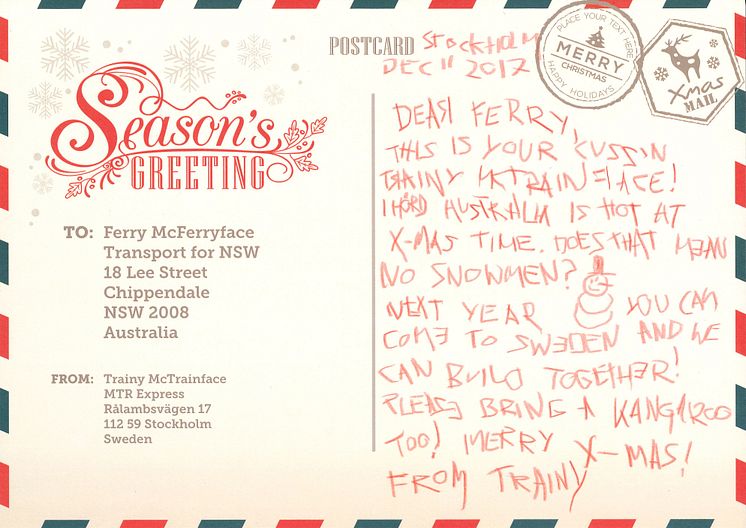 POSTCARD
STOCKHOLM
DEC 11 2017
PLACE YOUR TEXT HERE
MERRY
CHRISTMAS
HAPPY HOLIDAYS
Xmas
MAIL
Season's
GREETING
TO: Ferry McFerryface
Transport for NSW
18 Lee Street
Chippendale
NSW 2008
Australia
FROM: Trainy McTrainface
MTR Express
Rålambsvägen 17
112 59 Stockholm
Sweden
DEAR FERRY,
THIS IS YOUR CUSSIN
TRAINY MCTRAINFACE!
I HÖRD AUSTRALIA IS HOT AT
X-MAS TIME. DOES THAT MEAN
NO SNOWMEN?
NEXT YEAR YOU CAN
COME TO SWEDEN AND WE
CAN BUILD TOGETHER!
PLEASE BRING A KANGAROO
TOO! MERRY X-MAS!
FROM TRAINY